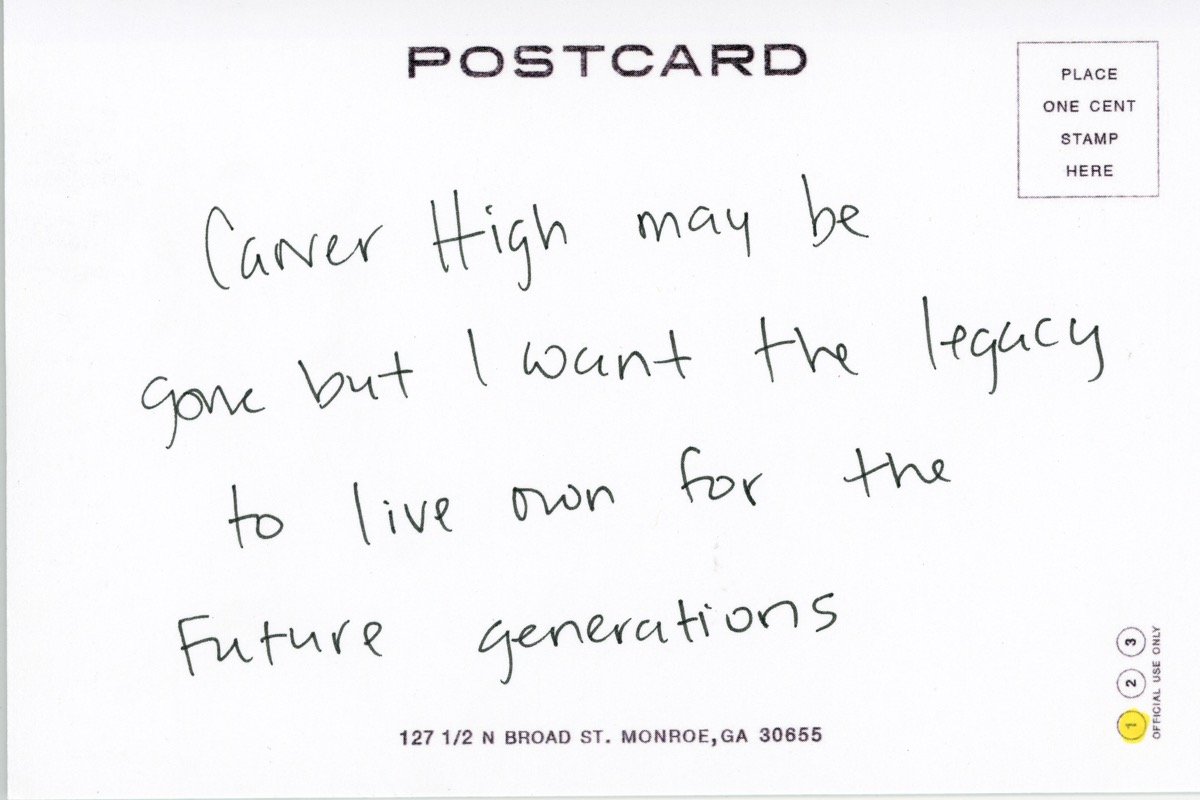 POSTCARD
PLACE
ONE CENT
STAMP
HERE
Carver High may be
gone but I want the legacy
to live own for the
Future generations
127 1/2 N BROAD ST. MONROE, GA 30655
1 2 3
OFFICIAL USE ONLY